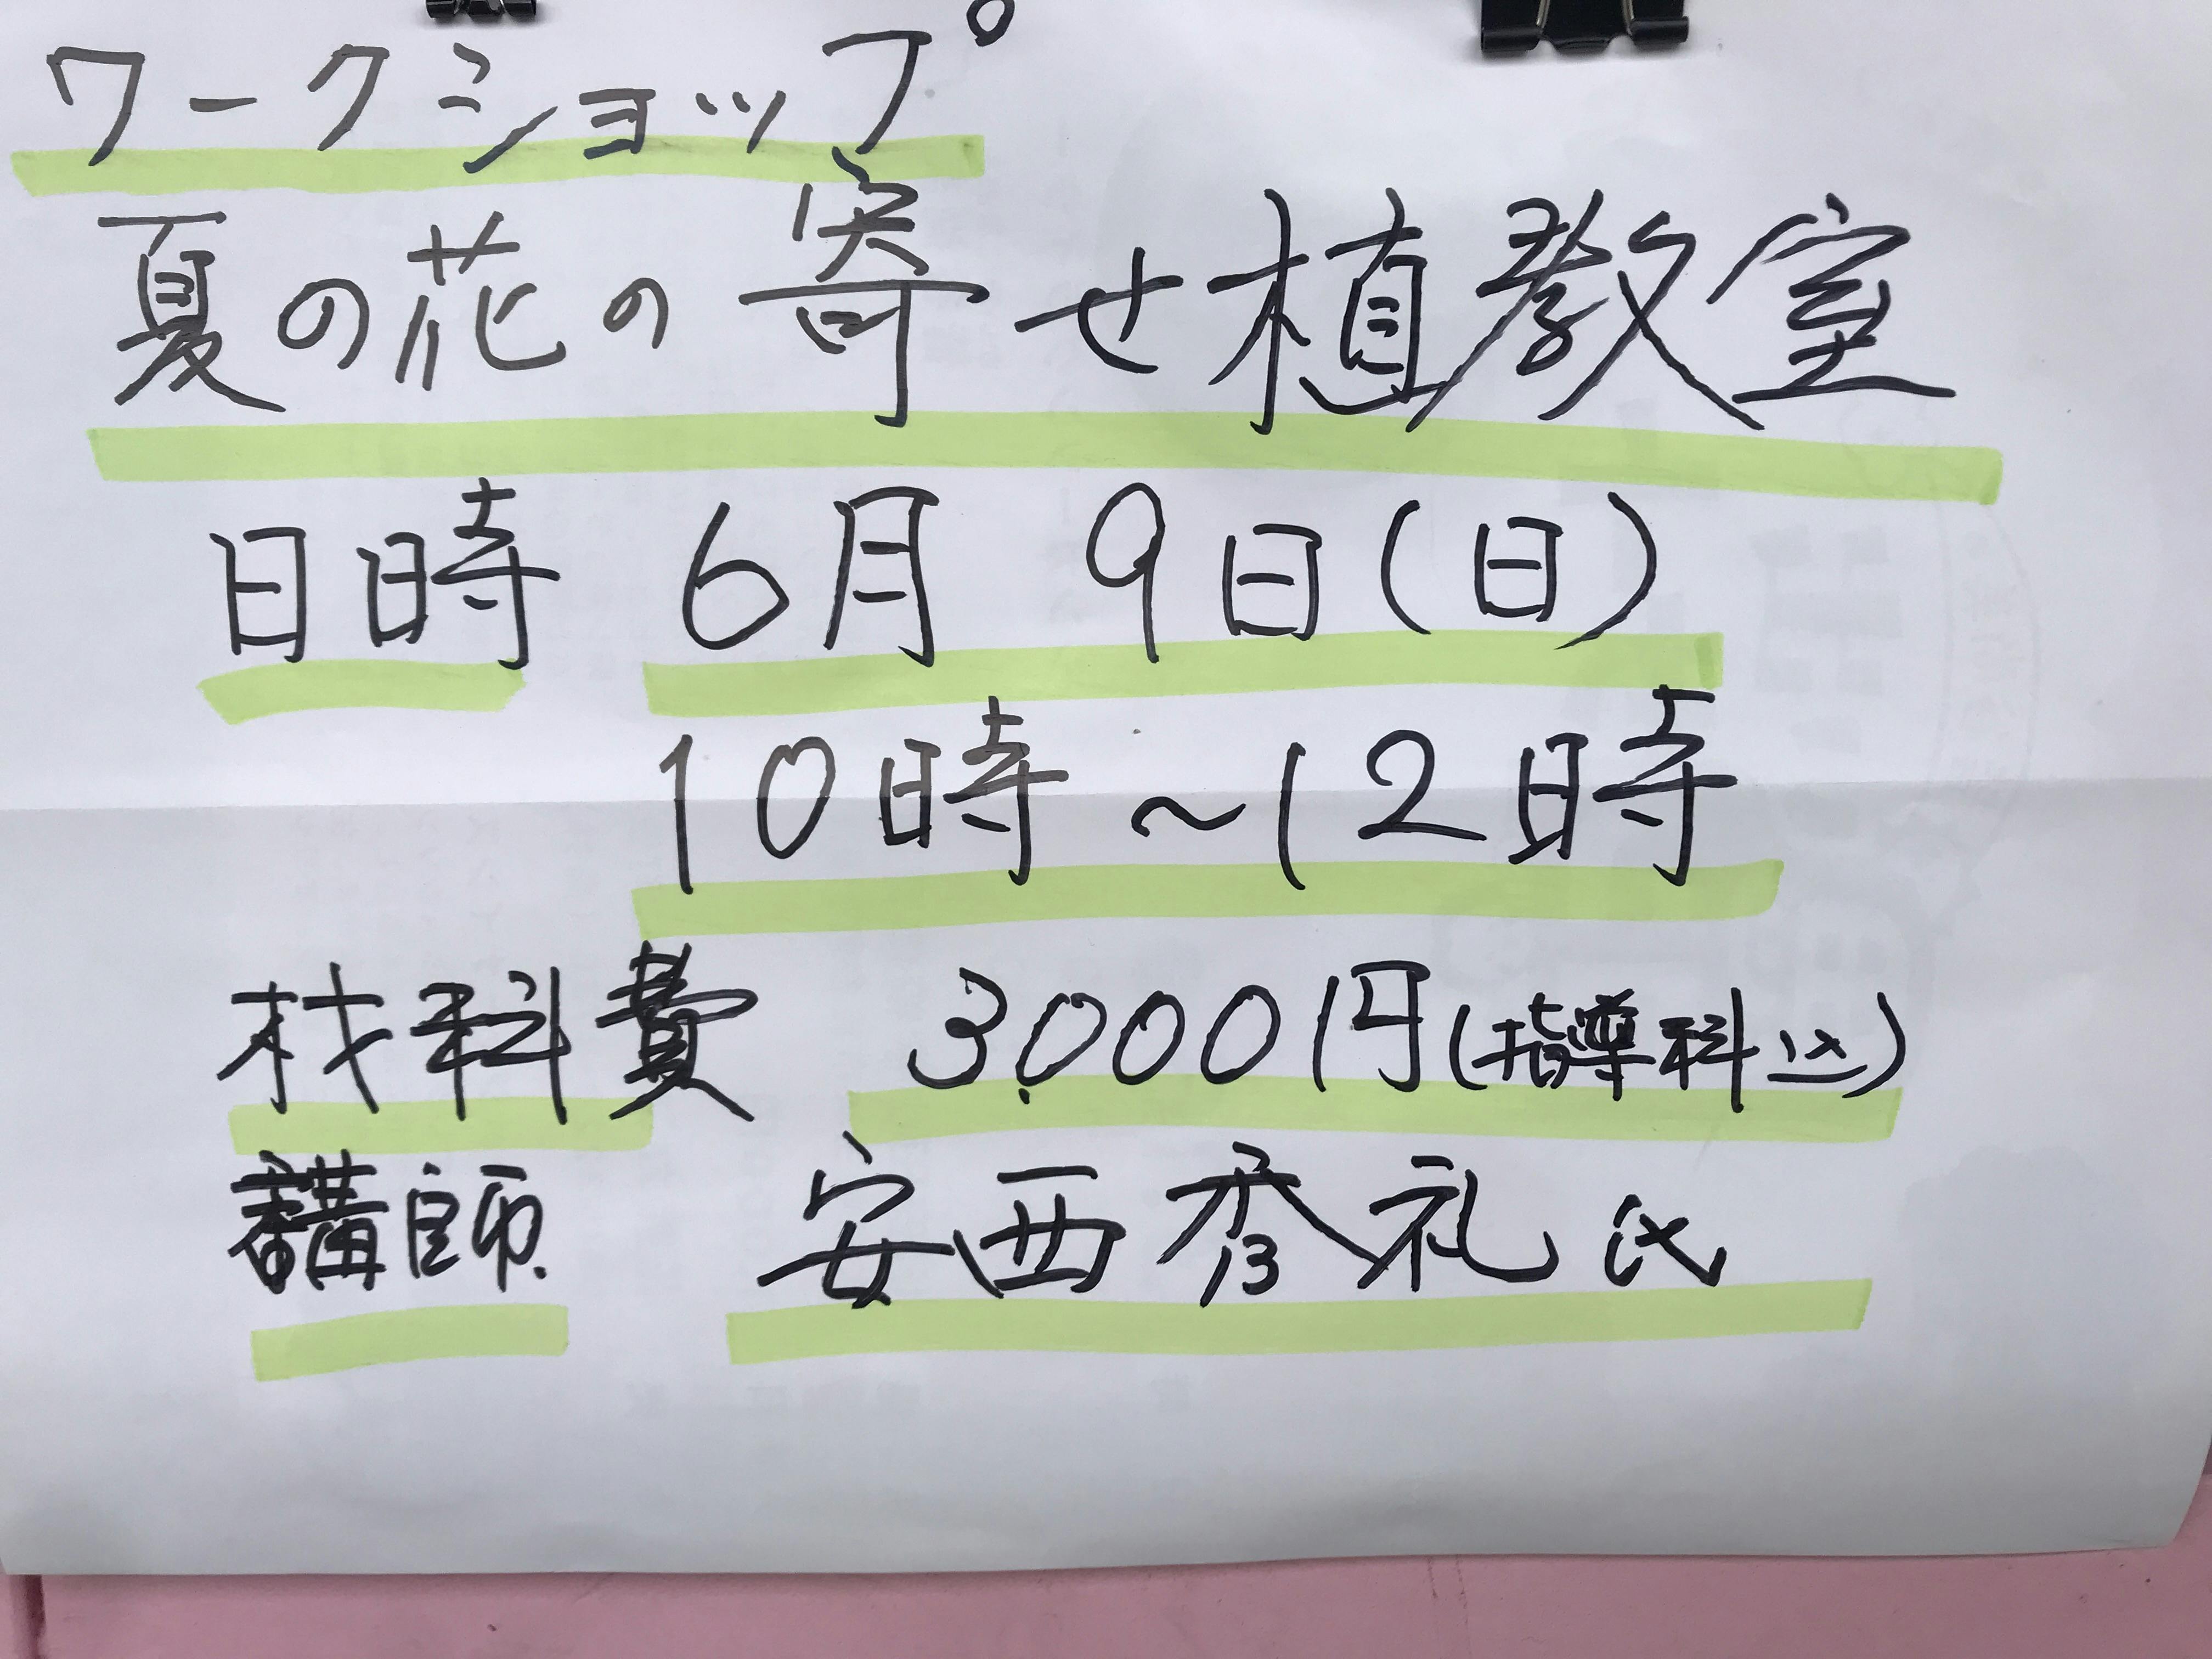 ワークショップ
夏の花の寄せ植教室
日時 6月 9日(日)
10時~12時
材料費 3,000円(指導料込)
講師 安西秀礼氏